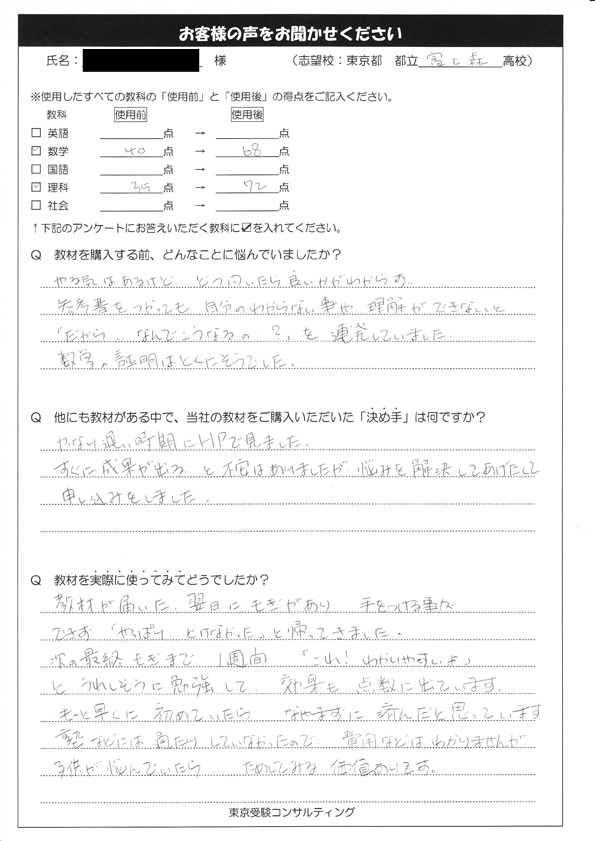 お客様の声をお聞かせください
氏名： 様 （志望校：東京都 都立 高校）
※使用したすべての教科の「使用前」と「使用後」の得点をご記入ください。
教科 使用前 使用後
□ 英語 点 → 点
☑ 数学 40 点 → 68 点
□ 国語 点 → 点
☑ 理科 35 点 → 72 点
□ 社会 点 → 点
↑下記のアンケートにお答えいただく教科に☑を入れてください。
Q 教材を購入する前、どんなことに悩んでいましたか？
やる気はあるけど どう向いたら良いかがわからず
参考書をつかっても 自分のわからない事や 理解ができないと
「だから‥なんでこうなるの？」を 連発していました.
数学の証明はとくにそうでした.
Q 他にも教材がある中で、当社の教材をご購入いただいた「決め手」は何ですか？
かなり遅い時期にHPで見ました。
すぐに成果が出る と不安はありましたが 悩みを解決してあげたくて
申し込みをしました.
Q 教材を実際に使ってみてどうでしたか？
教材が届いた. 翌日に もぎがあり 手をつける事が
できず 「やっぱり とけなかった」と帰ってきました.
次の最終もぎまで 1週間 「これ！わかりやすいよ」
と うれしそうに勉強して 効果も 点数に出ています.
もっと早くに 初めていたら なやまずに 済んだと思っています
塾などには通たりしていなかったので 費用などはわかりませんが
子供が悩んでいたら‥ ためしてみる 価値ありです。
東京受験コンサルティング